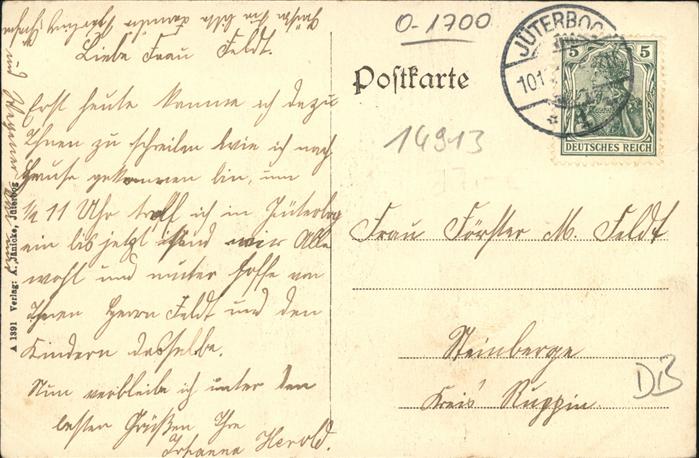 Liebe Frau Feldt.
Erst heute komme ich dazu
Ihnen zu schreiben wie ich nach
Hause gekommen bin, um
½ 11 Uhr traff ich in Jüterbog
ein bis jetzt sind wir Alle
wohl und munter hoffe von
Ihnen Herrn Feldt und den
Kindern dasselbe.
Nun verbleibe ich unter den
besten Grüßen Ihre
Johanna Herold.
A 1391 Verlag: A. Jänicke, Jüterbog
O-1700
Postkarte
14913
JÜTERBOG
101
* 1
5 5
DEUTSCHES REICH
Frau Förster M. Feldt
Steinberge
Kreis Ruppin.
DB